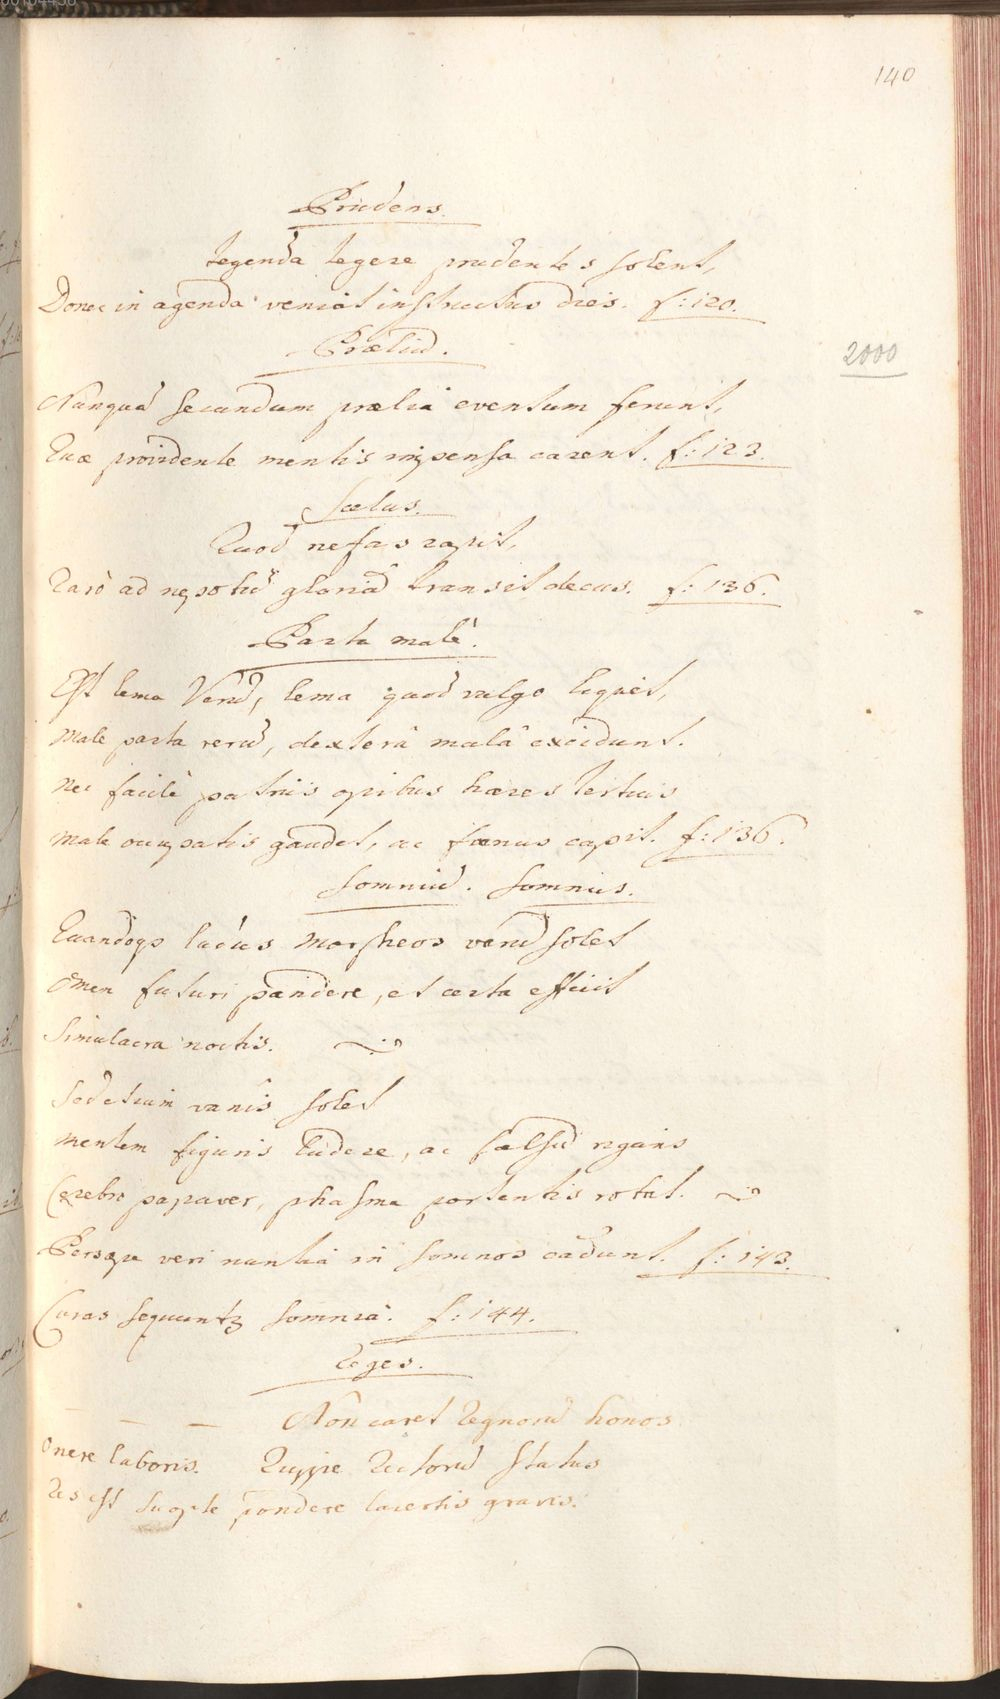 140
Prudens.
tegenda tegere prudentes solent,
Donec in agenda veniat instructus dies. f: 120.
Præliũ.
2000
Nunquã secundum prælia eventum ferunt,
Quæ providente mentis impensa carent. f: 123.
Scelus.
Quod nefas rapit,
Rarò ad nepotũ gloriã transit decus. f: 136.
Parta malè.
Est lema Verũ, lema quod vulgo liquet,
Male parta rerũ, dexterâ malâ excidunt.
Nec facilè patriis opibus hæres tertius
Male occupatis gaudet, ac fœnus capit. f: 136.
Somniũ. Somnus.
Quandoqs lætus Morpheos verũ solet
Omen futuri pandere, et certa efficit
Simulacra noctis.
Sed etiam vanis solet
Mentem figuris ludere, ac falsũ rigans
Cerebro papaver, phasma portentis rotat.
Persæpe veri nuntia in somnos cadunt. f: 143.
Curas sequuntr somnia. f: 144.
Reges.
Non caret Regnorũ honos
Onere laboris. Quippe Rectorũ status
Res est suopte pondere lacertis gravis.